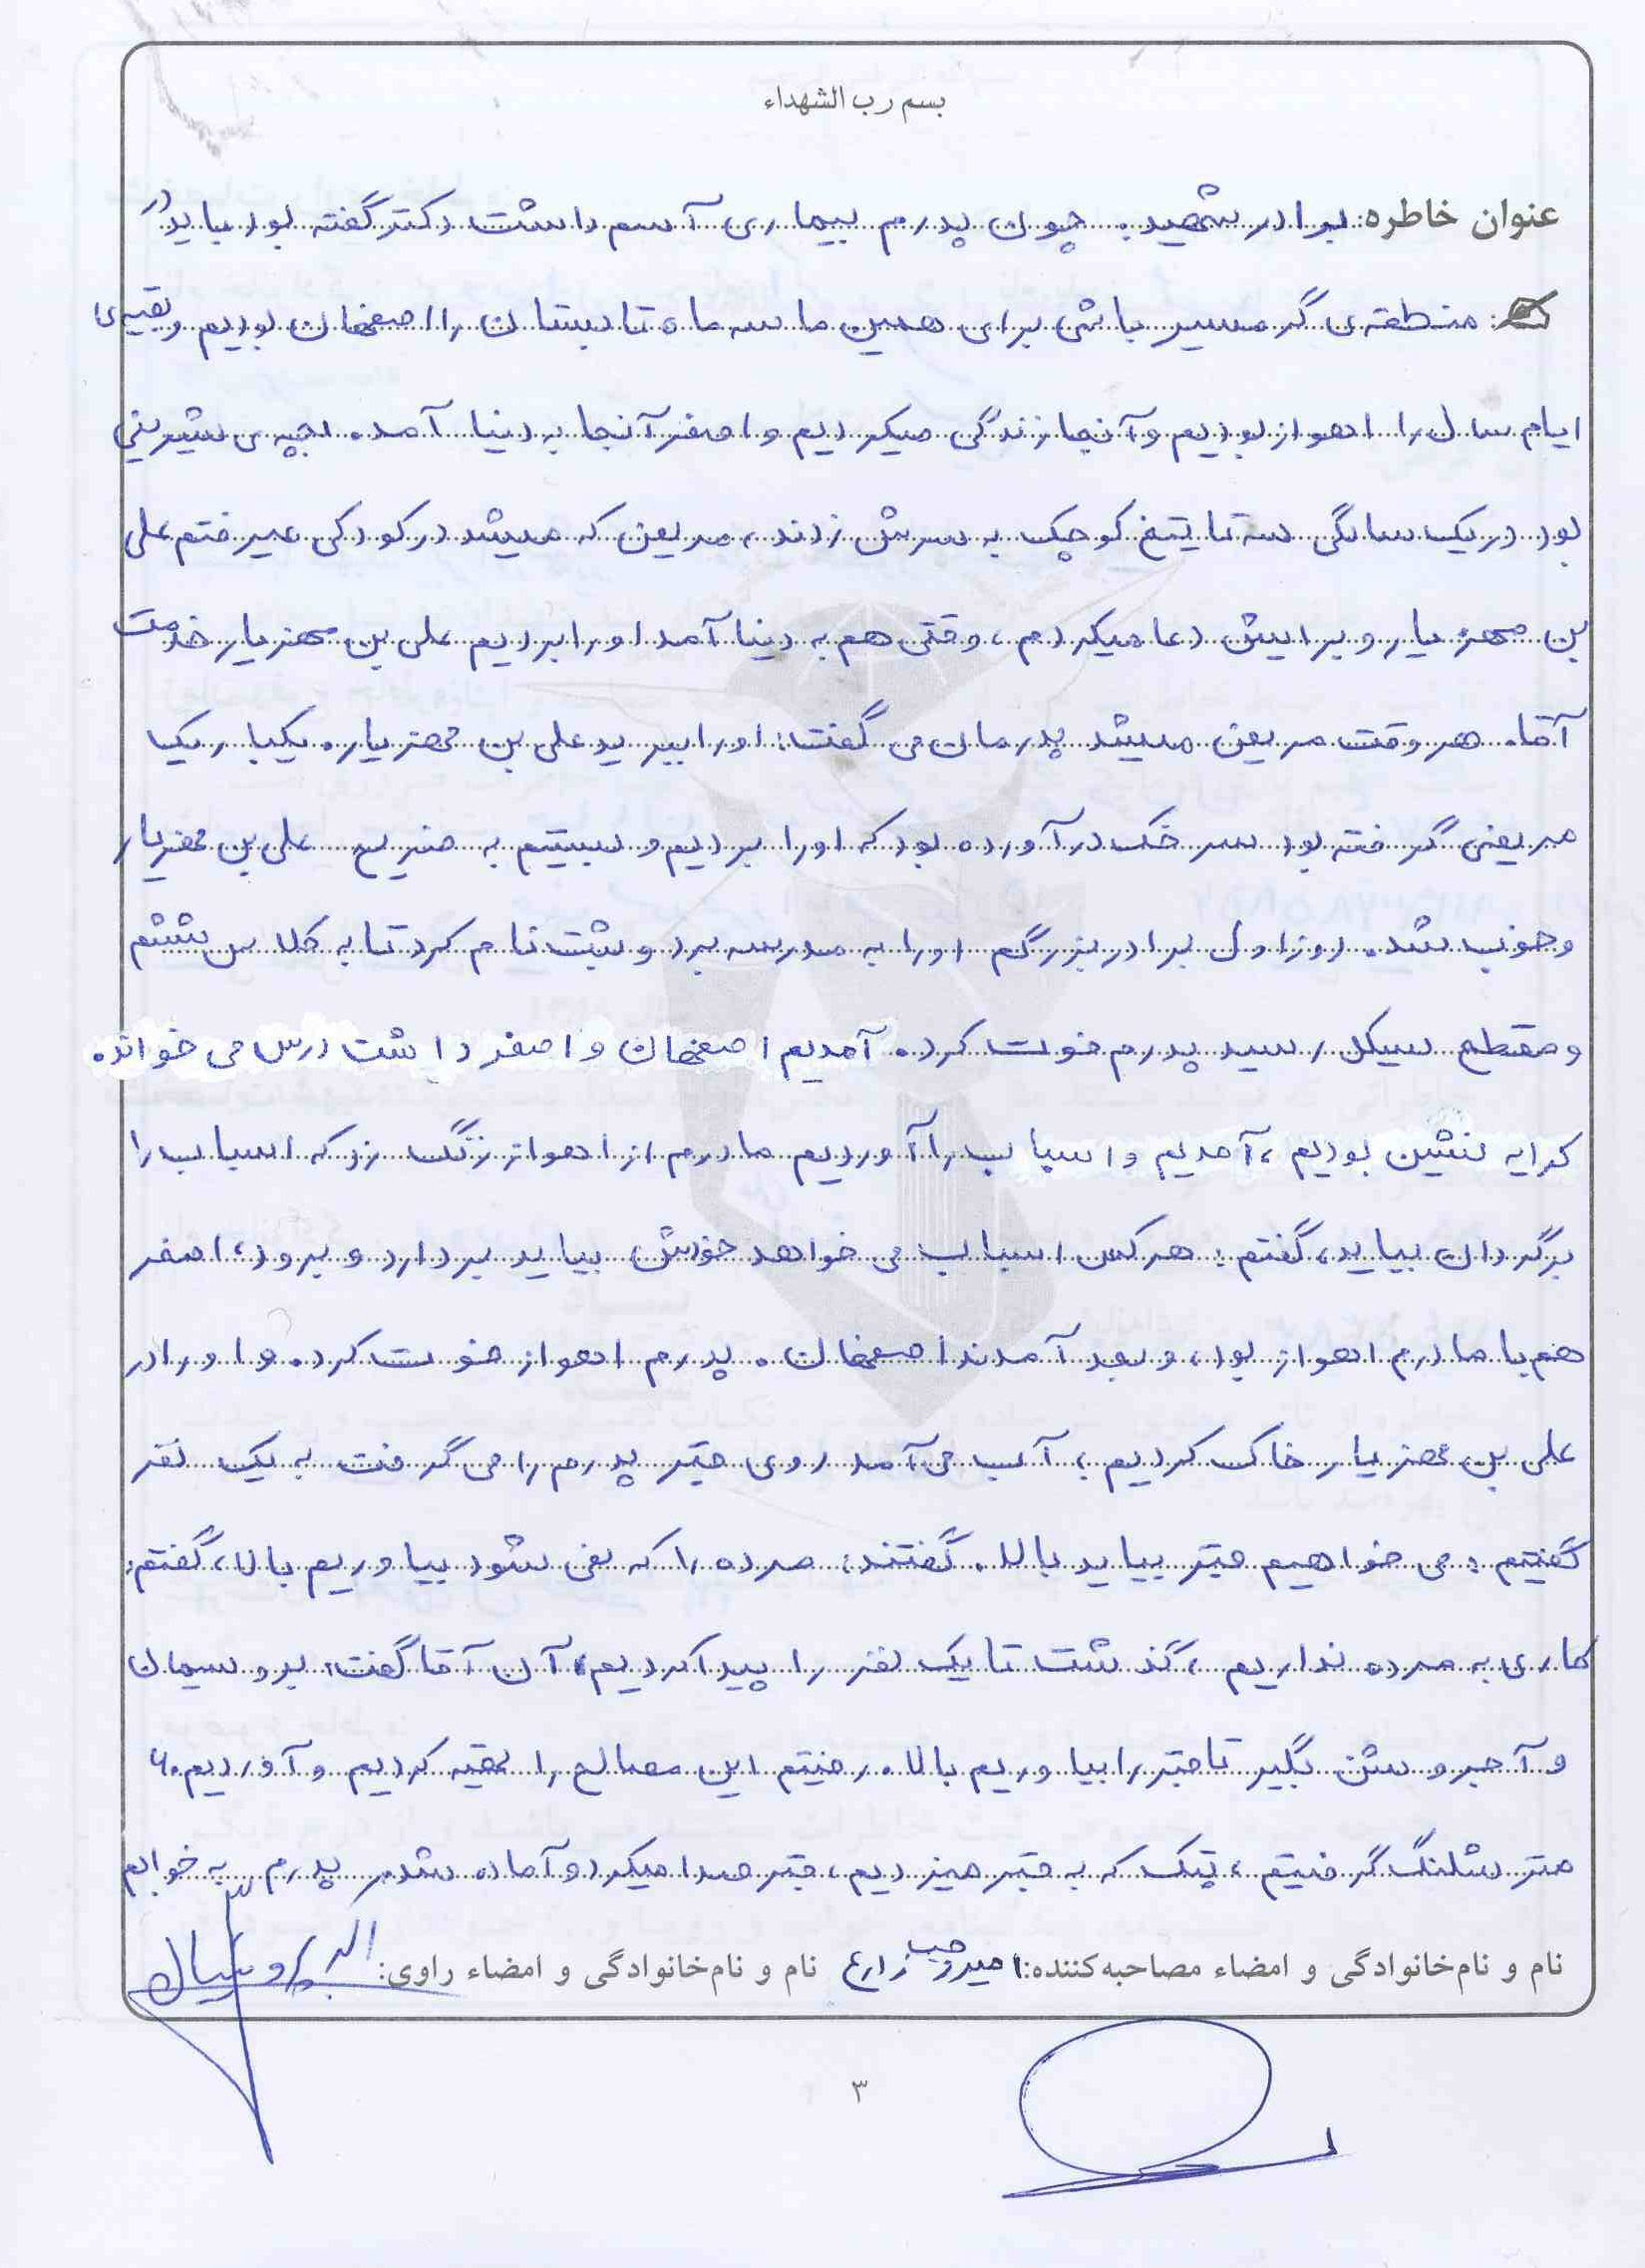 بسم رب الشهداء
عنوان خاطره: برادر شهید. چون پدرم بیماری آسم داشت دکتر گفته بود باید در
منطقه‌ی گرمسیر باشی برای همین ما سه ماه تابستان را اصفهان بودیم و بقیه‌ی
ایام سال را اهواز بودیم و آنجا زندگی میکردیم و اصغر آنجا به دنیا آمد. بچه‌ی شیرینی
بود در یک سالگی سه تا تیغ کوچک به سرش زدند، مریض که میشد در کودکی میرفتم علی
بن مهزیار و برایش دعا میکردم، وقتی هم به دنیا آمد او را بردیم علی بن مهزیار خدمت
آقا. هر وقت مریض میشد پدرمان می گفت: او را ببرید علی بن مهزیار. یکبار یکیا
مریضی گرفته بود سرخک درآورده بود که او را بردیم و بستیم به ضریح علی بن مهزیار
و خوب شد. روز اول برادر بزرگم او را به مدرسه برد و ثبت نام کرد تا به کلاس ششم
و مقطع سیکل رسید پدرم فوت کرد. آمدیم اصفهان و اصغر داشت درس می خواند.
کرایه نشین بودیم، آمدیم و اسباب را آوردیم مادرم از اهواز زنگ زد که اسباب را
برگردان بیاید، گفتم: هرکس اسباب می خواهد خودش بیاید بردارد و برود، اصغر
هم با مادرم اهواز بود، و بعد آمدند اصفهان. پدرم اهواز فوت کرد. و او را در
علی بن مهزیار خاک کردیم، آب می آمد روی قبر پدرم را می گرفت به یک نفر
گفتیم: می خواهیم قبر بیاید بالا. گفتند: مرده را که نمی شود بیاوریم بالا، گفتم:
کاری به مرده نداریم، گذشت تا یک نفر را پیدا کردیم، آن آقا گفت: برو سیمان
و آجر و شن بگیر تا قبر را بیاوریم بالا. رفتیم این مصالح را تهیه کردیم و آوردیم. ۶
متر شلنگ گرفتیم، پتک که به قبر میزدیم، قبر صدا میکرد و آماده شد. پدرم به خوابم
نام و نام‌خانوادگی و امضاء مصاحبه‌کننده: زارع نام و نام‌خانوادگی و امضاء راوی: اکبر
۳